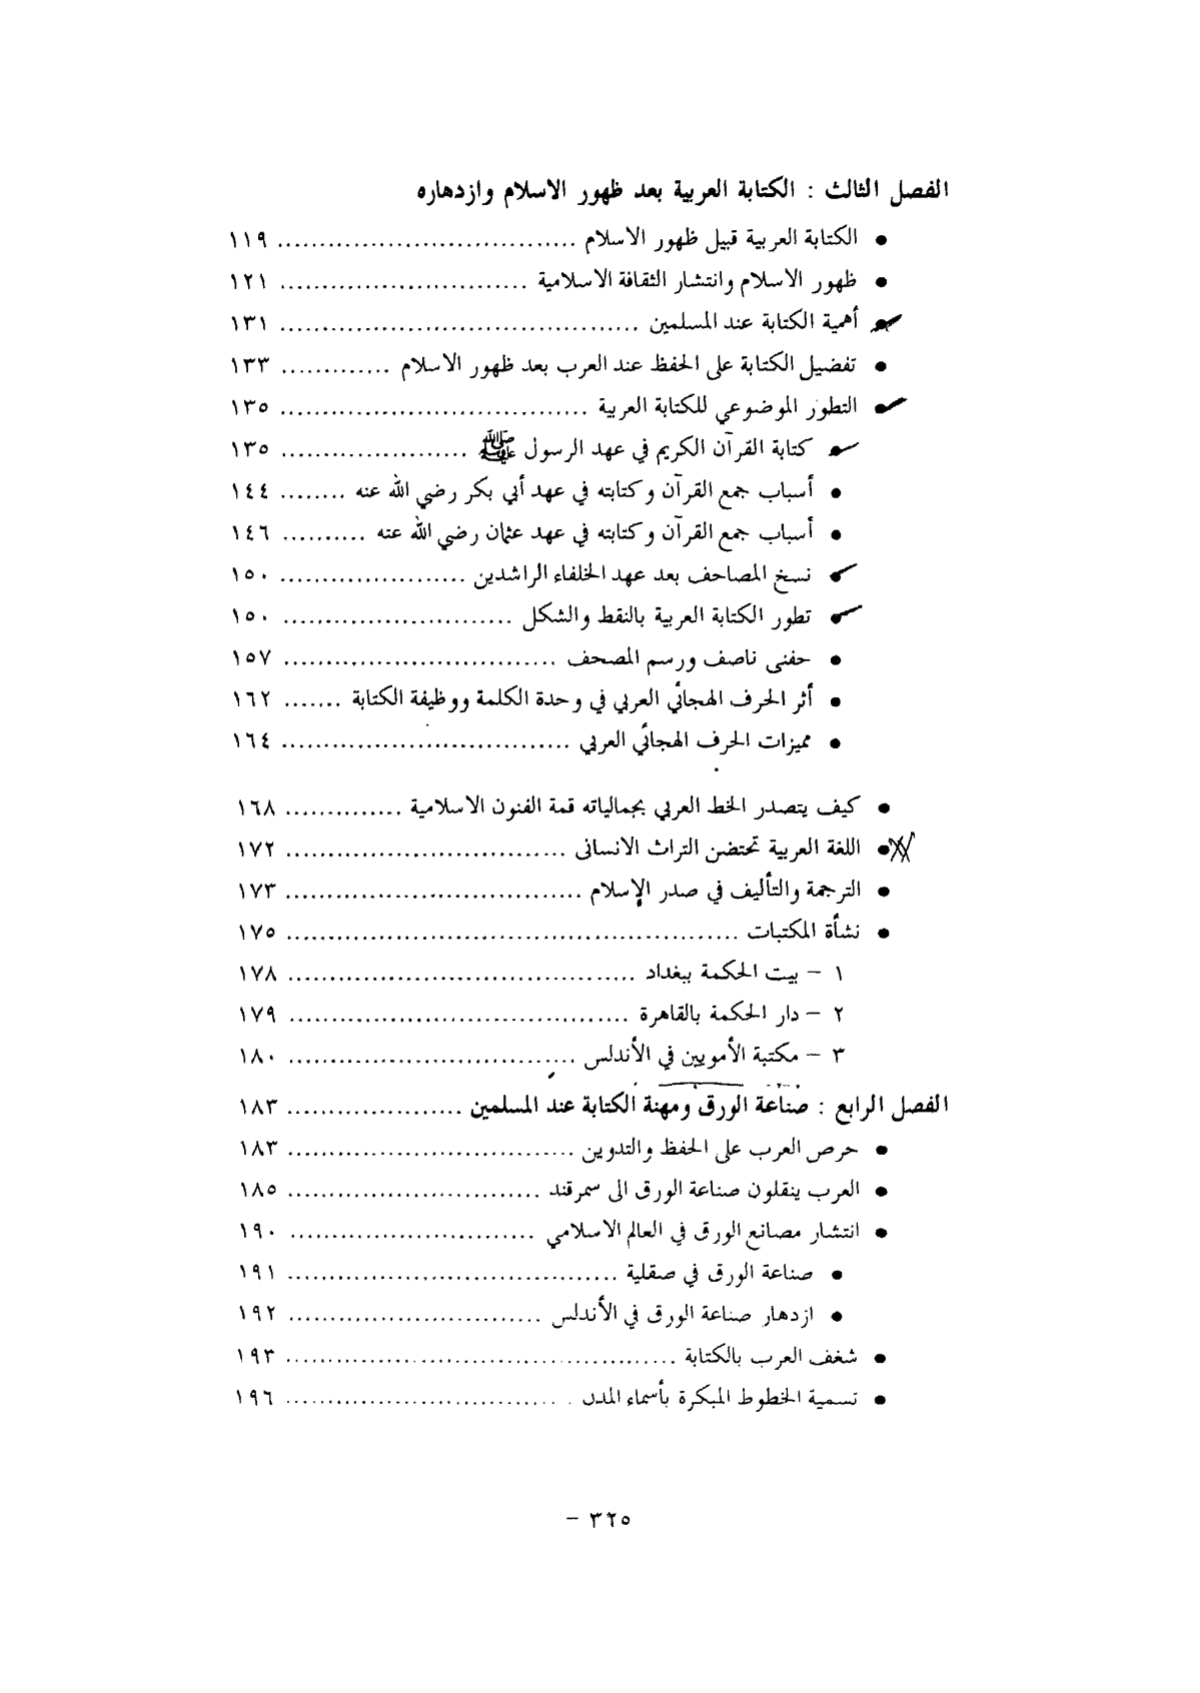 الفصل الثالث : الكتابة العربية بعد ظهور الاسلام وازدهاره
• الكتابة العربية قبيل ظهور الاسلام .................................... ١١٩
• ظهور الاسلام وانتشار الثقافة الاسلامية .............................. ١٢١
• أهمية الكتابة عند المسلمين ........................................... ١٣١
• تفضيل الكتابة على الحفظ عند العرب بعد ظهور الاسلام ............. ١٣٣
• التطور الموضوعي للكتابة العربية ..................................... ١٣٥
• كتابة القرآن الكريم في عهد الرسول ﷺ ...................... ١٣٥
• أسباب جمع القرآن وكتابته في عهد أبي بكر رضي الله عنه ........ ١٤٤
• أسباب جمع القرآن وكتابته في عهد عثمان رضي الله عنه .......... ١٤٦
• نسخ المصاحف بعد عهد الخلفاء الراشدين ...................... ١٥٠
• تطور الكتابة العربية بالنقط والشكل ........................... ١٥٠
• حفنى ناصف ورسم المصحف ................................. ١٥٧
• أثر الحرف الهجائي العربي في وحدة الكلمة ووظيفة الكتابة ....... ١٦٢
• مميزات الحرف الهجائي العربي .................................. ١٦٤
• كيف يتصدر الخط العربي بجمالياته قمة الفنون الاسلامية .............. ١٦٨
• اللغة العربية تحتضن التراث الانسانى ................................. ١٧٢
• الترجمة والتأليف في صدر الإسلام ................................... ١٧٣
• نشأة المكتبات ...................................................... ١٧٥
١ – بيت الحكمة ببغداد ......................................... ١٧٨
٢ – دار الحكمة بالقاهرة ........................................ ١٧٩
٣ – مكتبة الأمويين في الأندلس .................................. ١٨٠
الفصل الرابع : صناعة الورق ومهنة الكتابة عند المسلمين ..................... ١٨٣
• حرص العرب على الحفظ والتدوين .................................. ١٨٣
• العرب ينقلون صناعة الورق الى سمرقند .............................. ١٨٥
• انتشار مصانع الورق في العالم الاسلامي ............................. ١٩٠
• صناعة الورق في صقلية ....................................... ١٩١
• ازدهار صناعة الورق في الأندلس .............................. ١٩٢
• شغف العرب بالكتابة .............................................. ١٩٣
• تسمية الخطوط المبكرة بأسماء المدن .................................. ١٩٦
٣٢٥ –